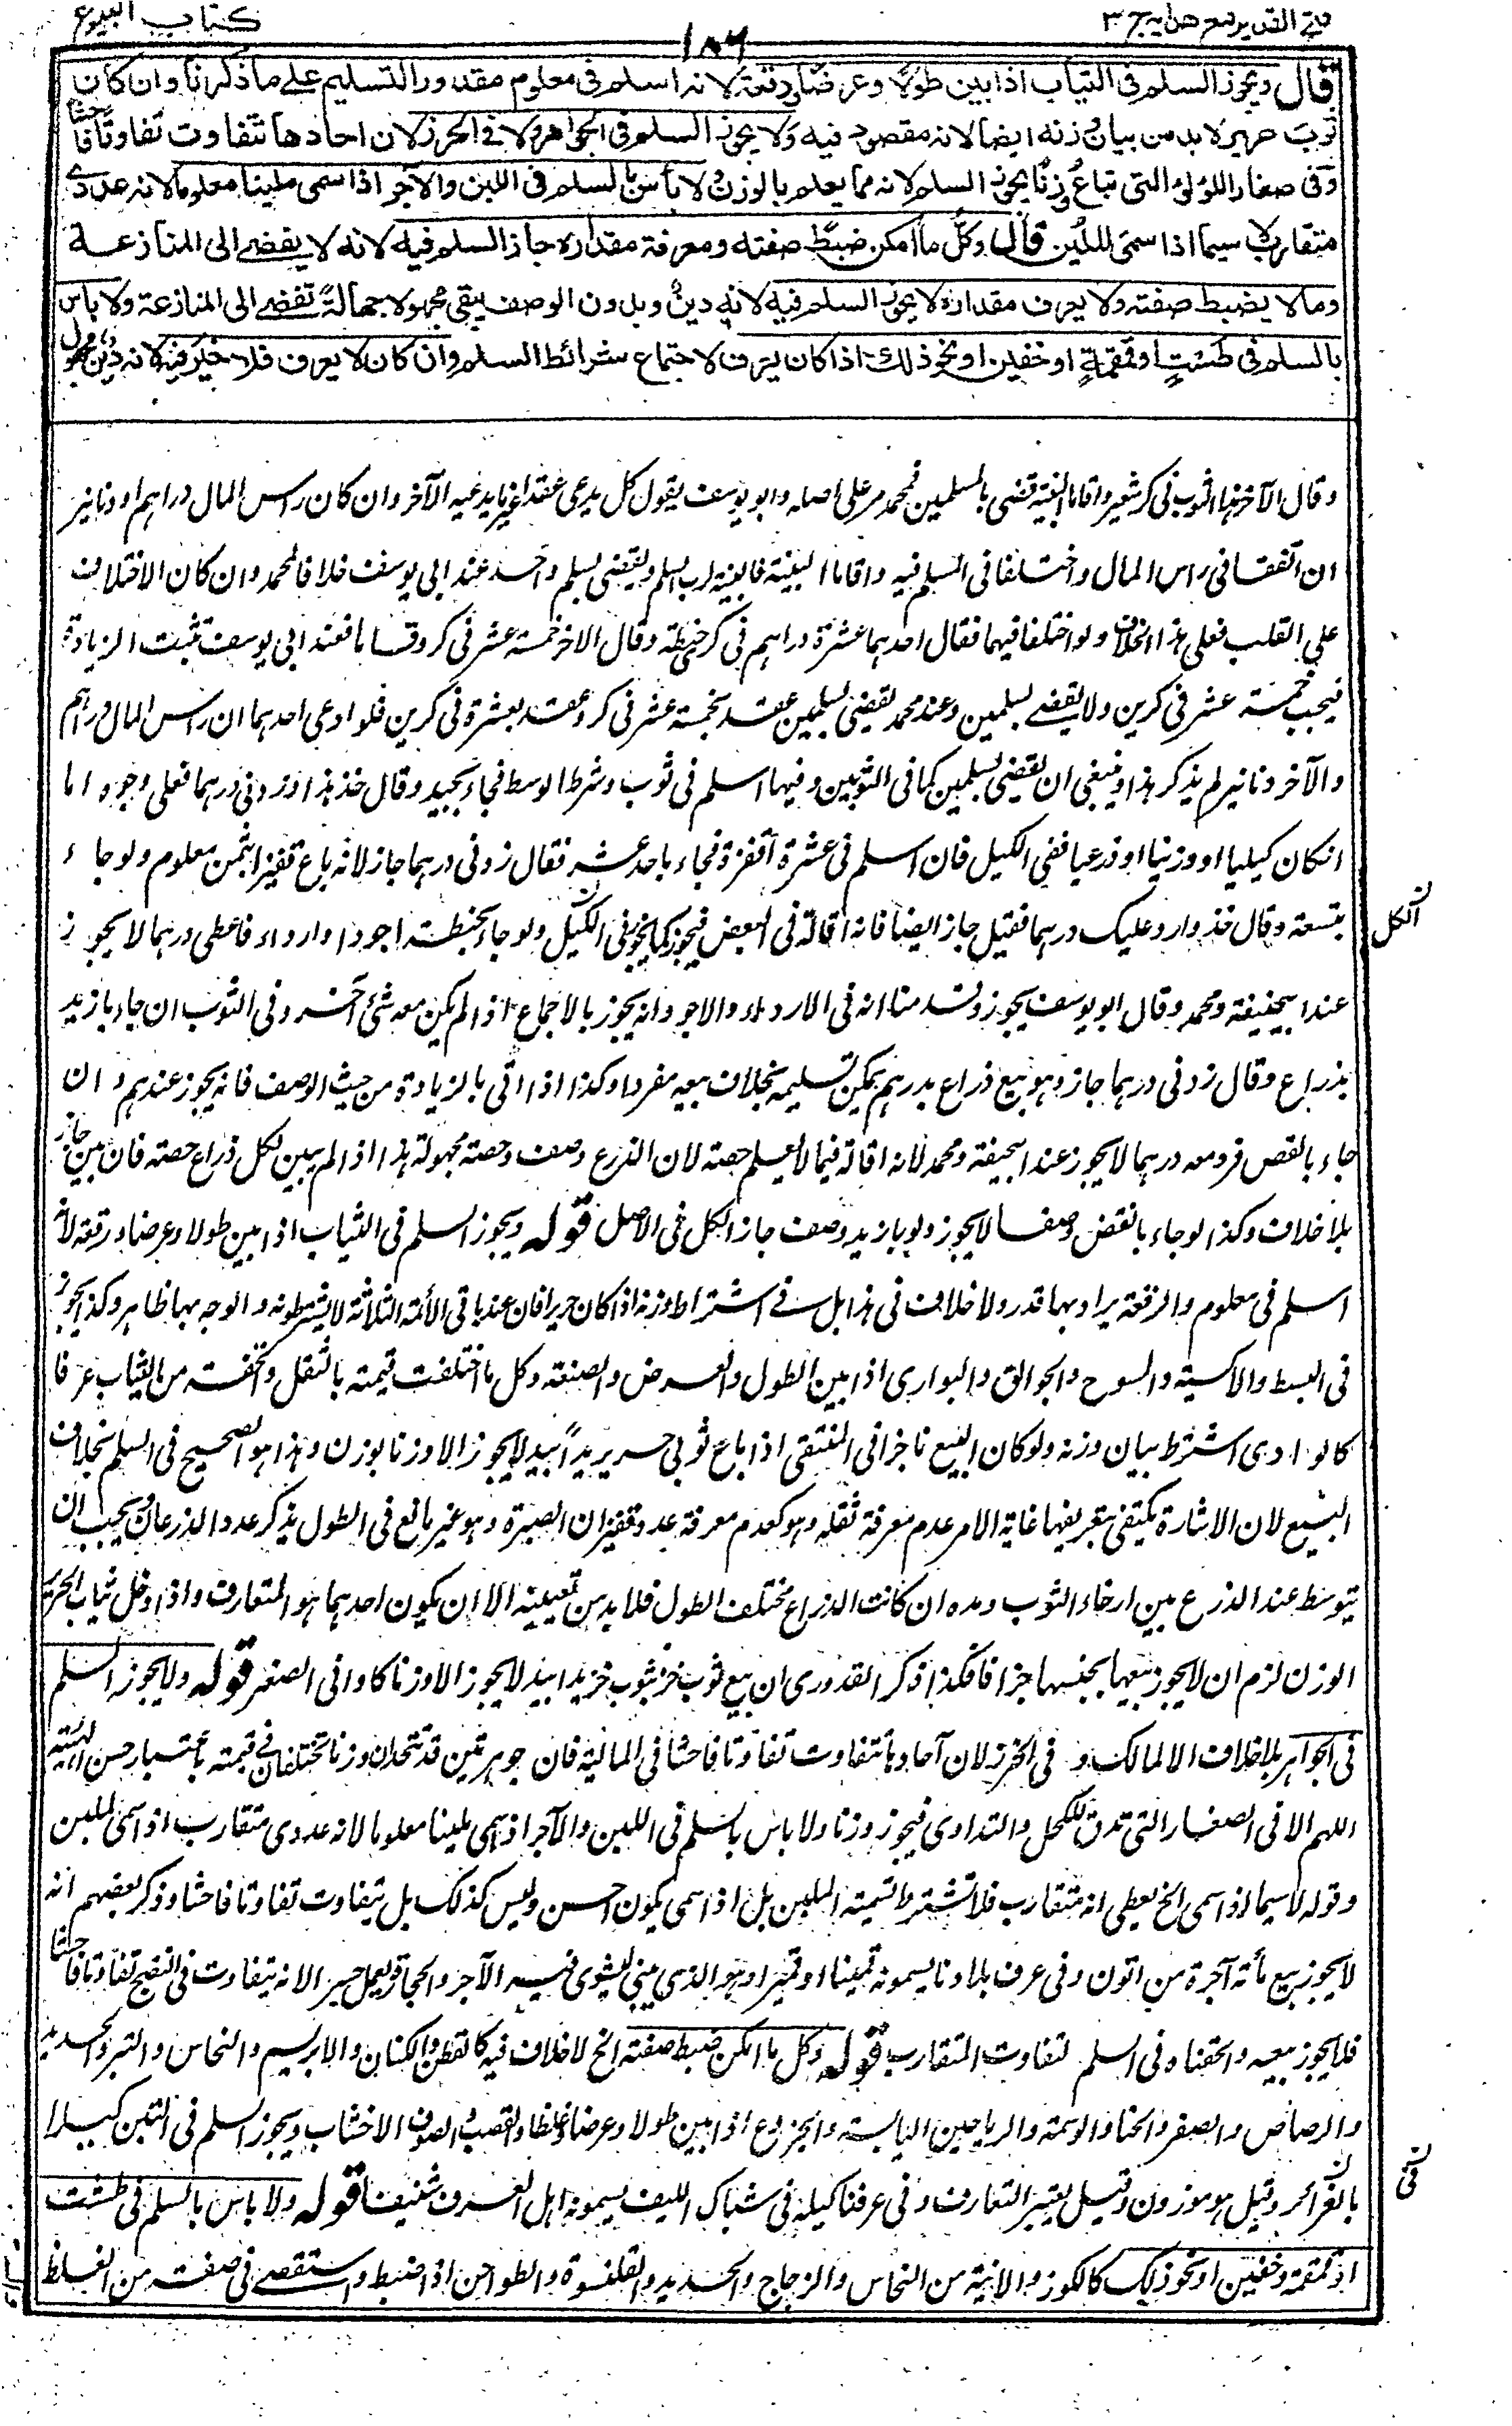 فتح القدير مع هدايه ج ٣
١٨٦
كتاب البيوع
قال ويجوز السلم في الثياب اذا بين طولا وعرضا ورقعة لانه اسلم في معلوم مقدور التسليم على ما ذكرنا وان كان
ثوب حرير لا بد من بيان وزنه ايضا لانه مقصود فيه ولا يجوز السلم في الجواهر ولا في الخرز لان احادها تتفاوت تفاوتا فاحشا
وفي صغار اللؤلؤ التي تباع وزنا يجوز السلم لانه مما يعلم بالوزن ولا بأس بالسلم في اللبن والآجر اذا سمى ملبنا معلوما لانه عددي
متقارب لا سيما اذا سمى الملبن قال وكل ما امكن ضبط صفته ومعرفة مقداره جاز السلم فيه لانه لا يفضي الى المنازعة
وما لا يضبط صفته ولا يعرف مقداره لا يجوز السلم فيه لانه دين وبدون الوصف يبقى مجهولا جهالة تفضي الى المنازعة ولا باس
بالسلم في طست او قمقمة او خفين او نحو ذلك اذا كان يعرف لاجتماع شرائط السلم وان كان لا يعرف فلا خير فيه لانه دين مجهول
وقال الآخر هذا الثوب في كر شعير واقاما البينة قضى بالسلمين فمحمد مر على اصله وابو يوسف يقول كل يدعي عقدا غير ما يدعيه الآخر وان كان راس المال دراهم او دنانير
ان اتفقا في راس المال واختلفا في المسلم فيه واقاما البينة فالبينة لرب السلم ويقضى بسلم واحد عند ابي يوسف خلافا لمحمد وان كان الاختلاف
على القلب فعلى هذا الخلاف ولو اختلفا فيهما فقال احدهما عشرة دراهم في كر حنطة وقال الاخر خمسة عشر في كر وقساما فعند ابي يوسف تثبت الزيادة
فيجب خمسة عشر في كرين ولا يقضي بسلمين وعند محمد يقضي بسلمين عقد بخمسة عشر في كر وعقد بعشرة في كرين فلو ادعى احدهما ان راس المال دراهم
والآخر دنانير لم يذكر هذا وينبغي ان يقضي بسلمين كما في الثوبين وفيها اسلم في ثوب وشرط الوسط فجاء بجيد وقال خذ هذا وزدني درهما فعلى وجوه اما
ان كان كيليا او وزنيا او ذرعيا ففي الكيل فان اسلم في عشرة اقفزة فجاء باحد عشر فقال زدني درهما جاز لانه باع قفيزا بثمن معلوم ولو جاء
بتسعة وقال خذ وارد عليك درهما فقيل جاز ايضا فانه اقالة في البعض فيجوز كما يجوز في الكل ولو جاء بحنطة اجود او اردء فاعطى درهما لا يجوز
ن الكل
عند ابيحنيفة ومحمد وقال ابو يوسف يجوز وقدمنا انه في الاردء والاجود انه يجوز بالاجماع اذا لم يكن معه شئ آخر وفي الثوب ان جاء بازيد
بذراع وقال زدني درهما جاز وهو بيع ذراع بدرهم يمكن تسليمه بخلاف بيعه مفردا وكذا اذا اتى بالزيادة من حيث الوصف فانه يجوز عندهم وان
جاء بانقص فرد معه درهما لا يجوز عند ابيحنيفة ومحمد لانه اقالة فيما لا يعلم حصته لان الذرع وصف وحصته مجهولة هذا اذا لم يبين لكل ذراع حصته فان بين جاز
بلا خلاف وكذا لو جاء بانقص وصفا لا يجوز ولو بازيد وصف جاز الكل في الاصل قوله ويجوز السلم في الثياب اذا بين طولا وعرضا ورقعة لانه
اسلم في معلوم والرقعة يراد بها قدر ولا خلاف في هذا بل في اشتراط وزنه اذا كان حريرا فان عند باقي الأئمة الثلاثة لا يشترطونه والوجه بها ظاهر وكذا يجوز
في البسط والاكسية والمسوح والجوالق والبواري اذا بين الطول والعرض والصنعة وكل ما اختلفت قيمته بالثقل والخفة من الثياب عرفا
كالوادي اشترط بيان وزنه ولو كان البيع ناجزا في المنتقى اذا باع ثوبي حرير يدا بيد لا يجوز الا وزنا بوزن وهذا هو الصحيح في السلم بخلاف
البيع لان الاشارة يكتفي بتعريفها غاية الامر عدم معرفة ثقله وهو كعدم معرفة عدد قفيزان الصبرة وهو غير مانع في الطول يذكر عدد الذرعان ويجب ان
يتوسط عند الذرع بين ارخاء الثوب ومده ان كانت الذراع مختلف الطول فلا بد من تعيينه الا ان يكون احدهما هو المتعارف واذا دخل ثياب الحرير
الوزن لزم ان لا يجوز بيعها بجنسها جزافا فكذا ذكر القدوري ان بيع ثوب خز بثوب خز يدا بيد لا يجوز الا وزنا كاواني الصفر قوله ولا يجوز السلم
في الجواهر بلا خلاف الا لمالك و في الخرز لان آحادها تتفاوت تفاوتا فاحشا في المالية فان جوهرتين قد تتحدان وزنا تختلفان في قيمة باعتبار حسن الهيئة
اللهم الا في الصغار التي تدق للكحل والتداوي فيجوز وزنا ولا باس بالسلم في اللبن والآجر اذا سمى ملبنا معلوما لانه عددي متقارب اذا سمى الملبن
وقوله لا سيما اذا سمى الخ يعطى انه متقارب فلا تشترط تسمية الملبن بل اذا سمى يكون احسن وليس كذلك بل يتفاوت تفاوتا فاحشا وذكر بعضهم انه
لا يجوز بيع مأته آجرة من اتون وفي عرف بلادنا يسمونه قمينا او قميرا وهو الذي يبنى ليشوى فيه الآجر والحجارة يعمل جيرا لانه يتفاوت في النضج تفاوتا فاحشا
فلا يجوز بيعه والحقناه في السلم لتفاوت المتقارب قوله وكل ما امكن ضبط صفته الخ لا خلاف فيه كالقطن والكتان والابريسم والنحاس والتبر والحديد
والرصاص والصفر والحنا والوسمة والرياحين اليابسة والجذوع اذا بين طولا وعرضا وغلظا والقصب والصوف الاخشاب ويجوز السلم في التبن كيلا
بالغرائر وقيل هو موزون وقيل يعتبر التعارف وفي عرفنا كيله في شباك الليف يسمونه اهل العرف شنيفا قوله ولا باس بالسلم في طشت
ن في
او قمقمة وخفين او نحو ذلك كالكوز والانية من النحاس والزجاج والحديد والقلنسوة والطواجن اذا ضبط واستقصى في صفته من الغلظ